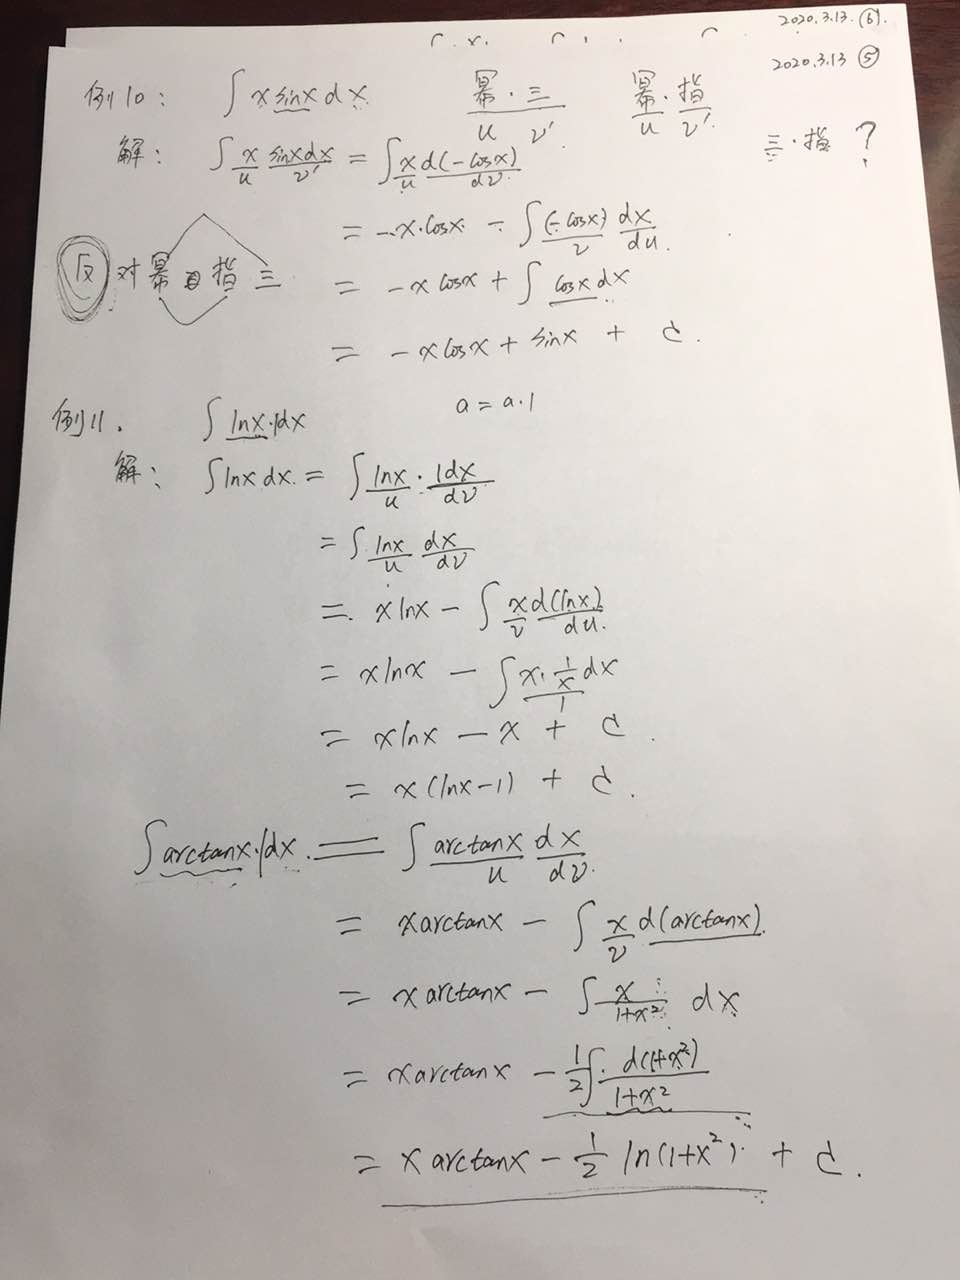 2020.3.13. ⑥
2020.3.13 ⑤
例10: ∫ x sinx dx 幂·三 幂·指
u v' u v'
三·指 ?
解: ∫ x sinxdx = ∫ x d(-cosx)
u v' u dv
= -x·cosx - ∫ (-cosx) dx
v du
反 对 幂 指 三
= -x cosx + ∫ cosx dx
= -x cosx + sinx + C.
例11. ∫ lnx·1dx a = a·1
解: ∫ lnx dx = ∫ lnx · 1dx
u dv
= ∫ lnx dx
u dv
= x lnx - ∫ x d(lnx)
v du
= x lnx - ∫ x· 1/x dx
1
= x lnx - x + C.
= x (lnx-1) + C.
∫ arctanx·1dx = ∫ arctanx dx
u dv
= x arctanx - ∫ x d(arctanx)
v
= x arctanx - ∫ x/(1+x²) dx
= x arctanx - 1/2 ∫ d(1+x²)/(1+x²)
= x arctanx - 1/2 ln(1+x²) + C.